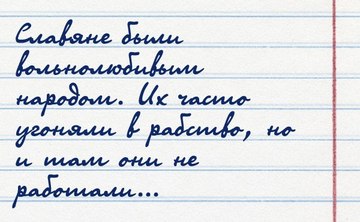 Славяне были
вольнолюбивым
народом. Их часто
угоняли в рабство, но
и там они не
работали...